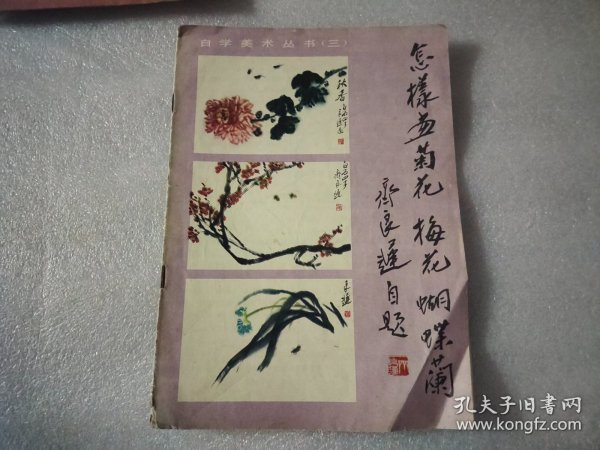 自学美术丛书(三)
怎樣画菊花 梅花 蝴蝶蘭
齊良遲自題
秋香
良遲
孔夫子旧书网
www.kongfz.com